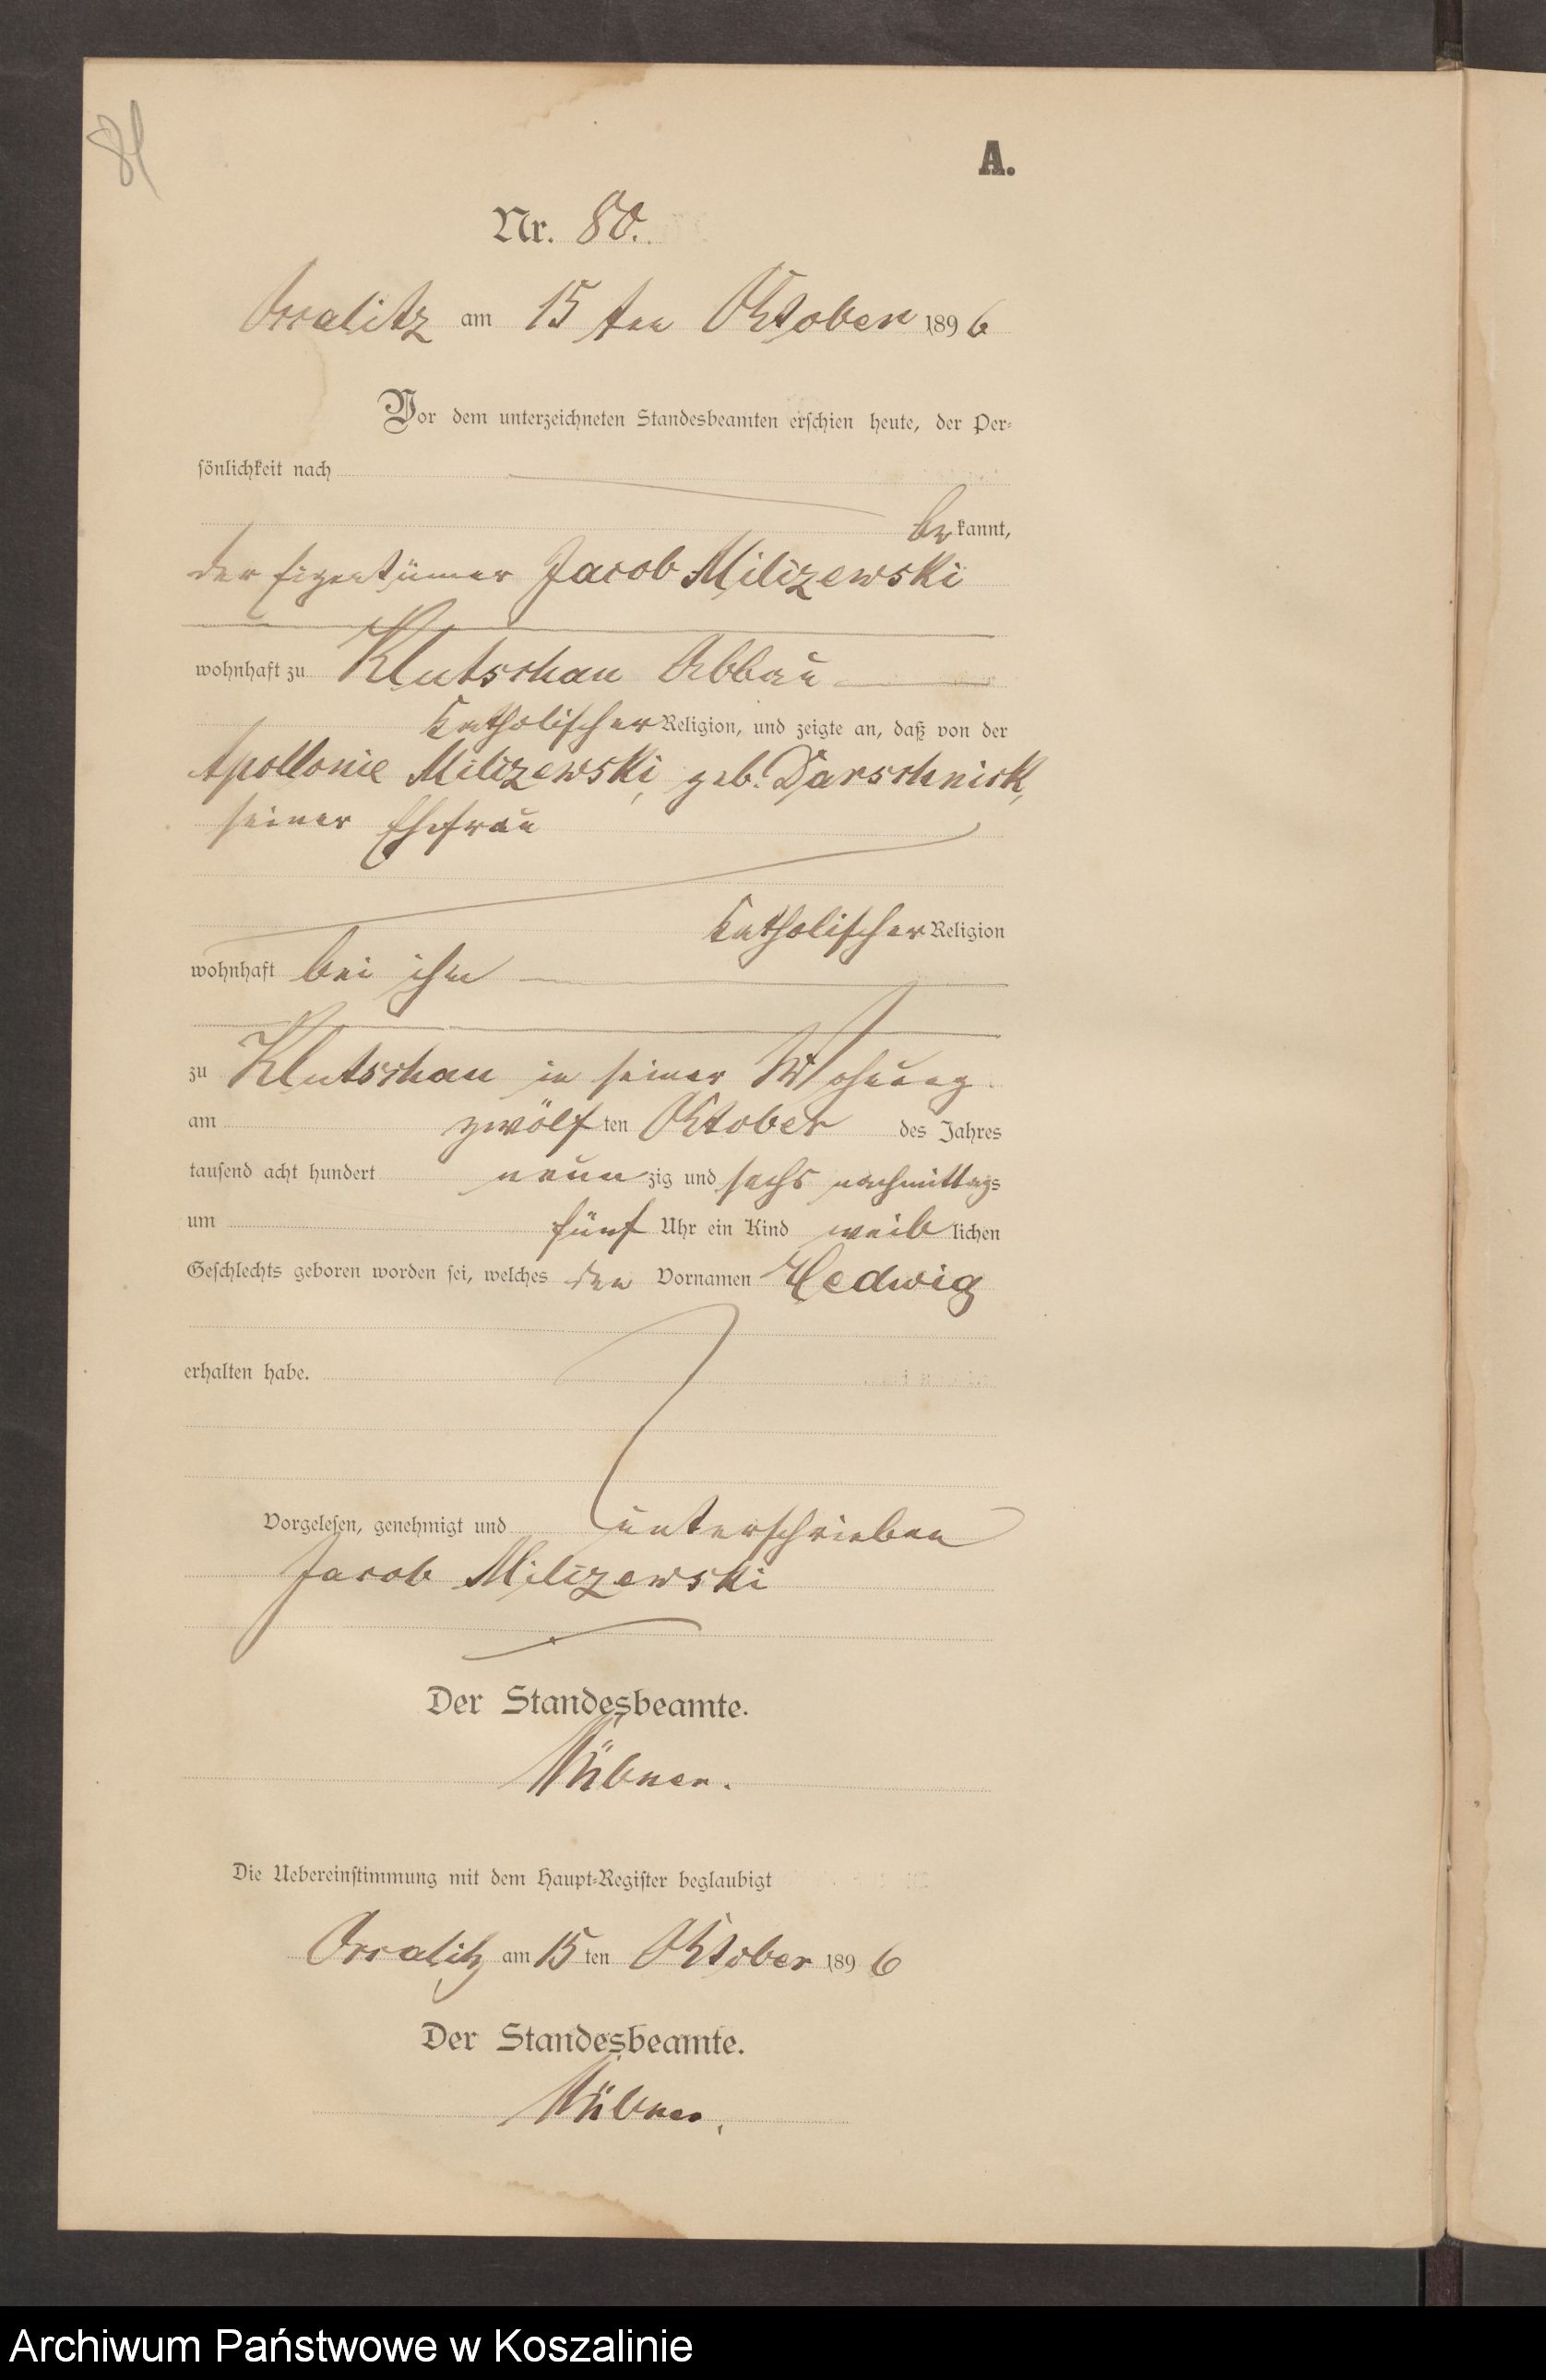 81
A.
Nr. 80.
Ossalitz am 15 ten Oktober 1896
Vor dem unterzeichneten Standesbeamten erschien heute, der Per-
sönlichkeit nach
bekannt,
der Eigentümer Jacob Milizewski
wohnhaft zu Klutschau Abbau
katholischer Religion, und zeigte an, daß von der
Apollonie Milizewski, geb. Darschnick,
seiner Ehefrau
katholischer Religion
wohnhaft bei ihm
zu Klutschau in seiner Wohnung
am zwölften Oktober des Jahres
tausend acht hundert neunzig und sechs nachmittags
um fünf Uhr ein Kind weiblichen
Geschlechts geboren worden sei, welches den Vornamen Hedwig
erhalten habe.
Vorgelesen, genehmigt und unterschrieben
Jacob Milizewski
Der Standesbeamte.
Hübner.
Die Uebereinstimmung mit dem Haupt-Register beglaubigt
Ossalitz am 15ten Oktober 1896
Der Standesbeamte.
Hübner.
Archiwum Państwowe w Koszalinie